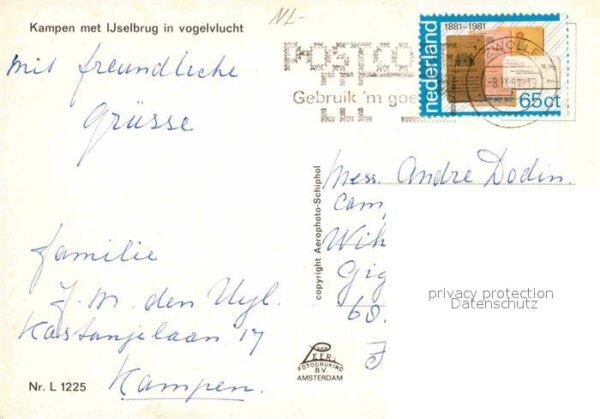 Kampen met IJselbrug in vogelvlucht
NL-
POSTCO
Gebruik 'm goe
1881-1981
nederland
65 ct
ZWOLLE
mit freundliche
Grüsse
familie
J. M. den Uyl.
Kastanjelaan 17
Kampen.
Nr. L 1225
copyright Aerophoto-Schiphol
VAN
LEER'S
FOTODRUKIND
B.V.
AMSTERDAM
Mess. Andre Dodin.
Cam
Wih
Gig
60.
F
privacy protection
Datenschutz